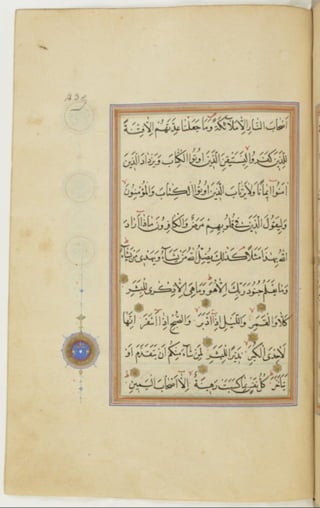 اَصْحَابَ النَّارِ اِلَّا مَلٰٓئِكَةً وَمَا جَعَلْنَا عِدَّتَهُمْ اِلَّا فِتْنَةً
لِلَّذِينَ كَفَرُوا لِيَسْتَيْقِنَ الَّذِينَ اُوتُوا الْكِتَابَ وَيَزْدَادَ الَّذِينَ
اٰمَنُوا اِيمَانًا وَلَا يَرْتَابَ الَّذِينَ اُوتُوا الْكِتَابَ وَالْمُؤْمِنُونَ
وَلِيَقُولَ الَّذِينَ فِي قُلُوبِهِمْ مَرَضٌ وَالْكَافِرُونَ مَاذَا اَرَادَ
اللّٰهُ بِهٰذَا مَثَلًا كَذٰلِكَ يُضِلُّ اللّٰهُ مَنْ يَشَاءُ وَيَهْدِي مَنْ يَشَاءُ
وَمَا يَعْلَمُ جُنُودَ رَبِّكَ اِلَّا هُوَ وَمَا هِيَ اِلَّا ذِكْرٰى لِلْبَشَرِ
كَلَّا وَالْقَمَرِ وَالَّيْلِ اِذْ اَدْبَرَ وَالصُّبْحِ اِذَا اَسْفَرَ اِنَّهَا
لَاِحْدَى الْكُبَرِ نَذِيرًا لِلْبَشَرِ لِمَنْ شَاءَ مِنْكُمْ اَنْ يَتَقَدَّمَ اَوْ
يَتَاَخَّرَ كُلُّ نَفْسٍ بِمَا كَسَبَتْ رَهِينَةٌ اِلَّا اَصْحَابَ الْيَمِينِ